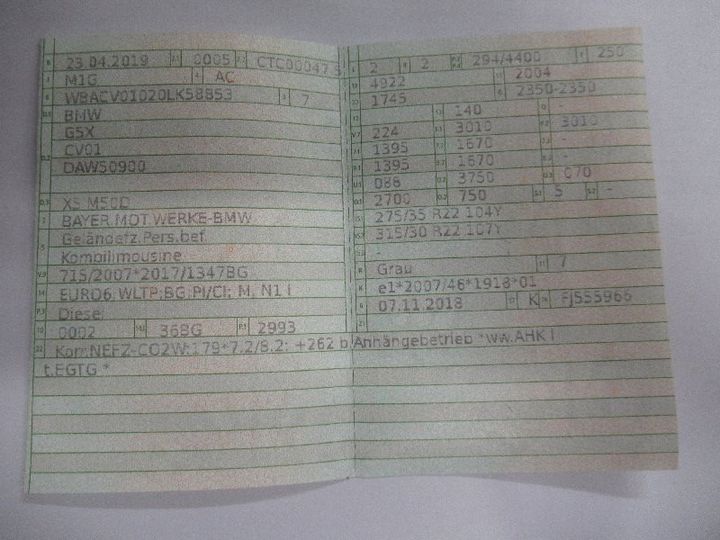 23.04.2019 0005 CTC00047 5
M1G AC
WBACV01020LK58853 7
BMW
G5X
CV01
DAW50900
X5 M50D
BAYER.MOT.WERKE-BMW
Geländefz.Pers.bef
Kombilimousine
715/2007*2017/1347BG
EURO6;WLTP;BG;PI/CI; M, N1 I
Diesel
0002 36BG 2993
Kom.NEFZ-CO2W:179*7.2/8.2: +262 b.
t.EGTG *
2 2 294/4400 250
4922 2004
1745 2350-2350
140 -
224 3010 3010
1395 1670 -
1395 1670 -
088 3750 070
2700 750 5 -
275/35 R22 104Y
315/30 R22 107Y
-
Grau 7
e1*2007/46*1918*01
07.11.2018 K
Anhängebetrieb *ww.AHK l